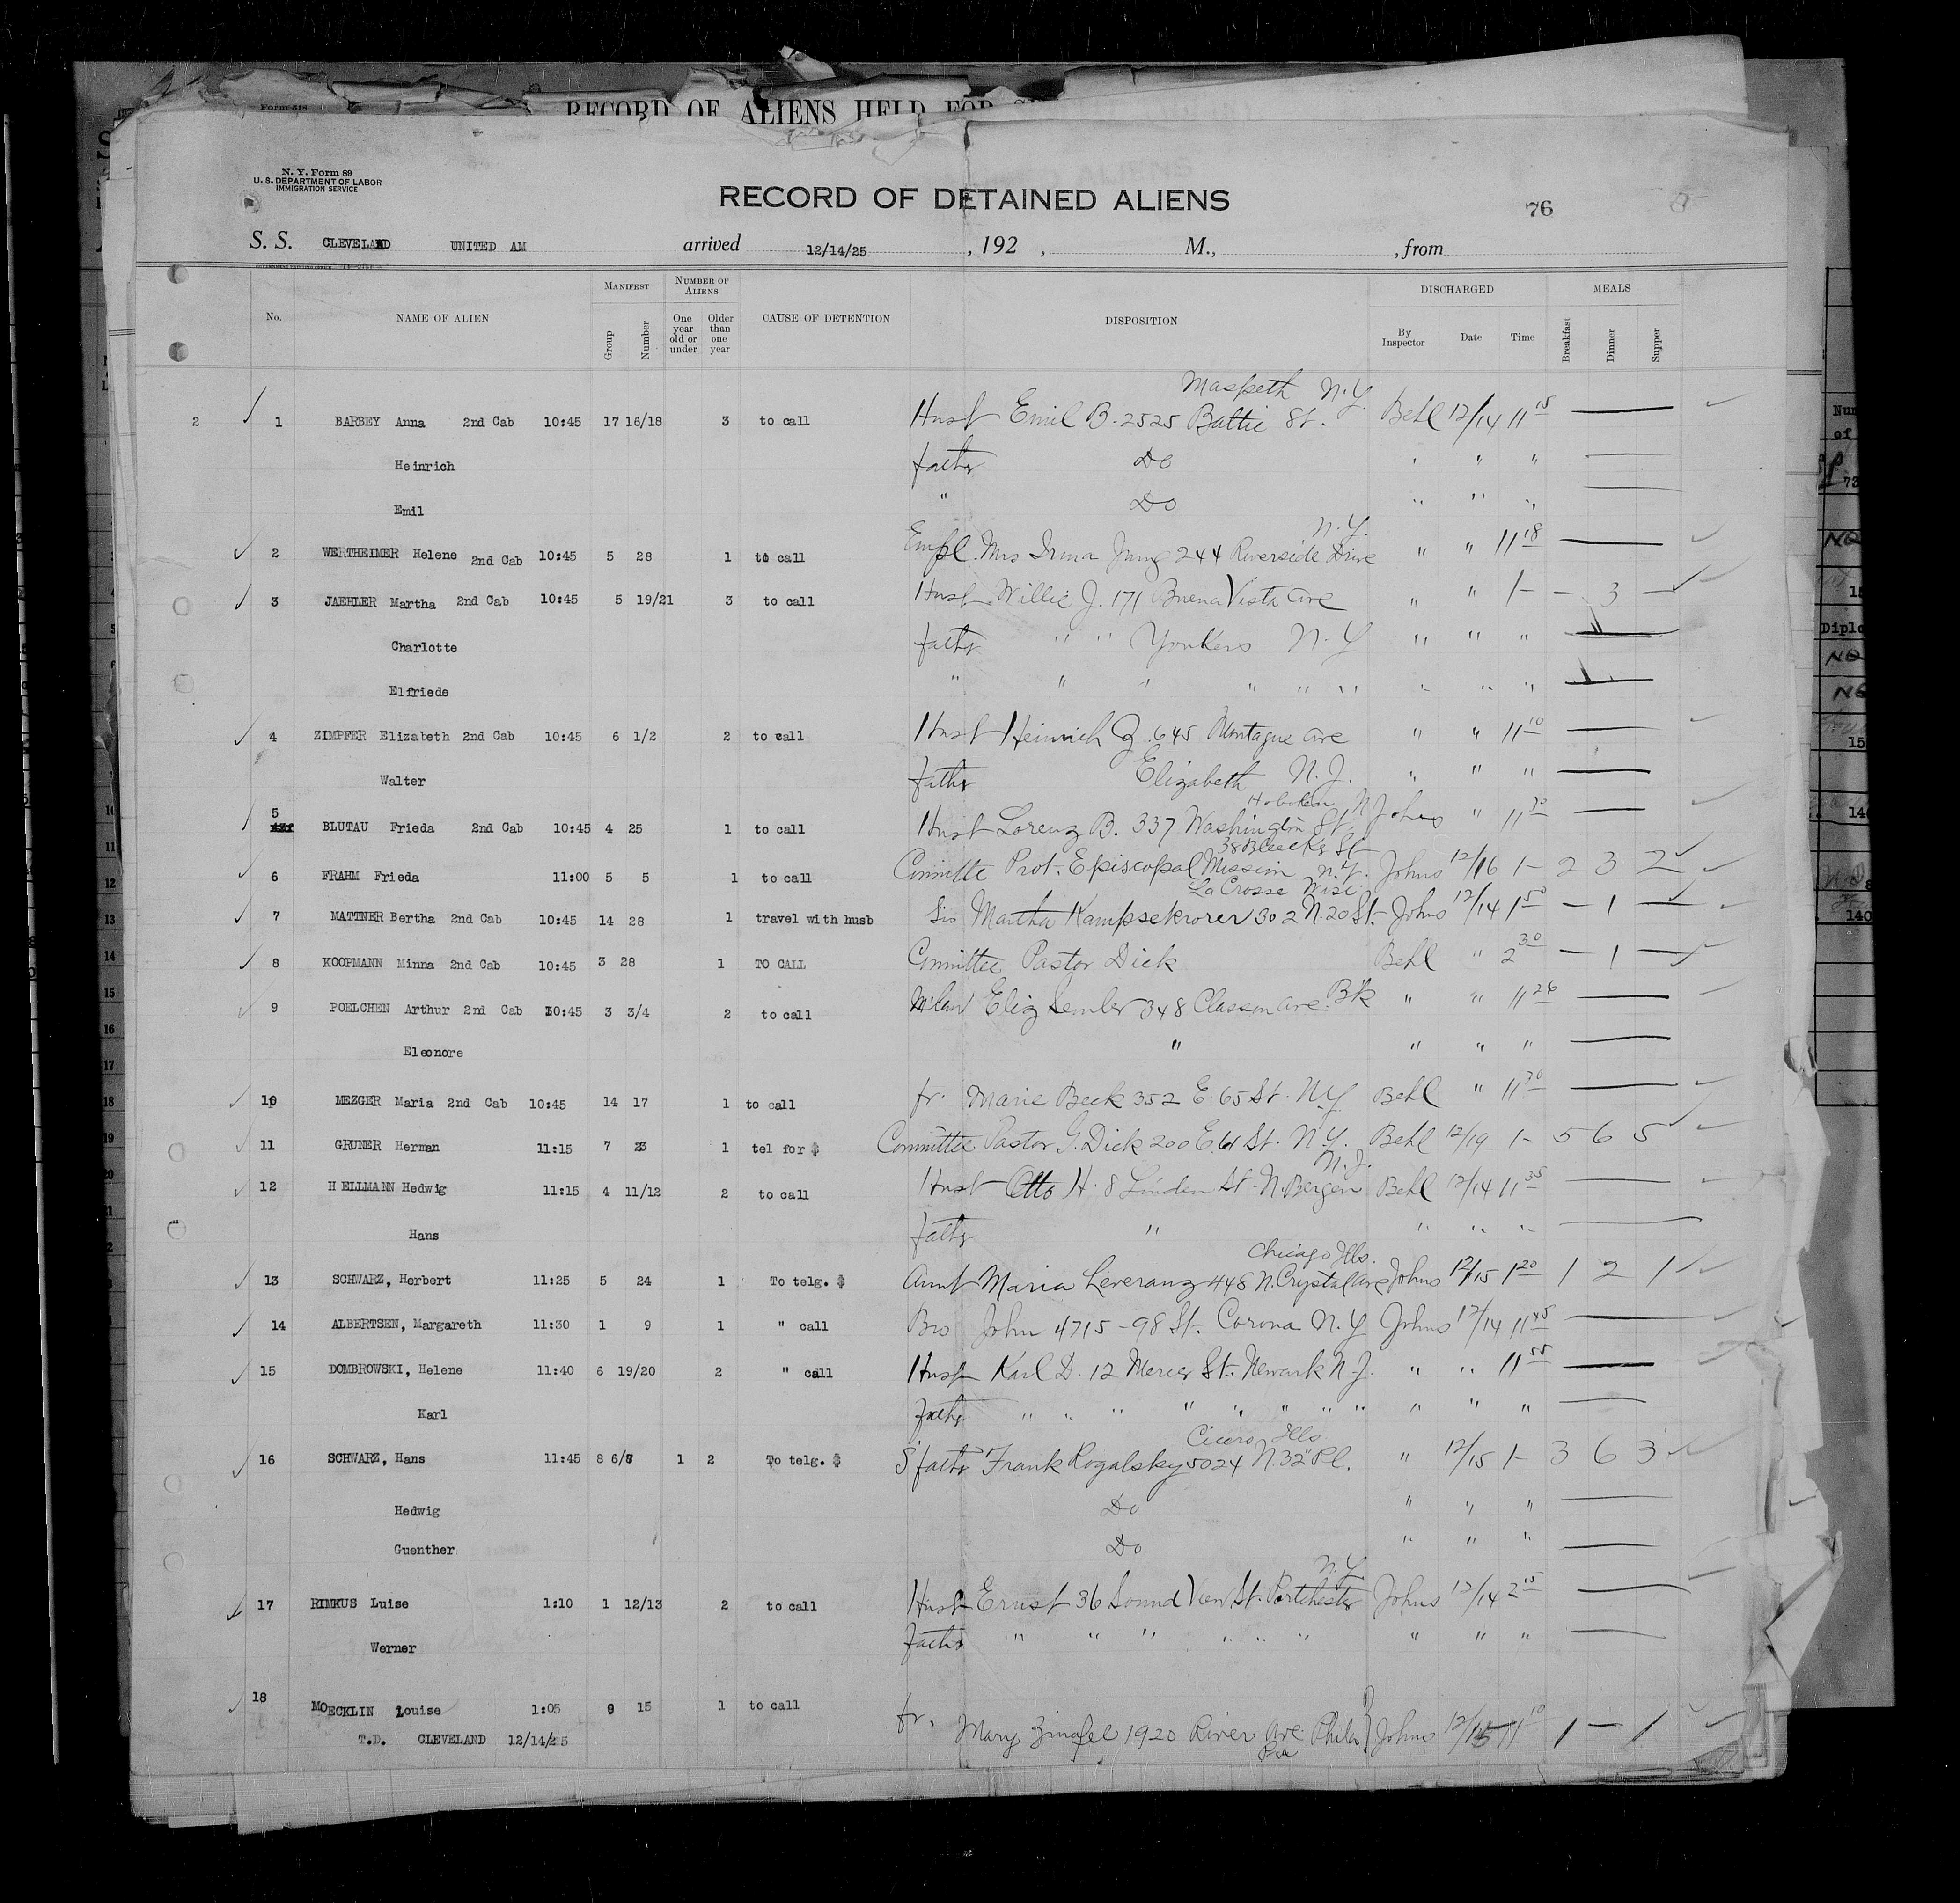 Form 518
RECORD OF ALIENS HELD FOR
N. Y. Form 89
U. S. DEPARTMENT OF LABOR
IMMIGRATION SERVICE
RECORD OF DETAINED ALIENS
76
S. S. CLEVELAND UNITED AM arrived 12/14/25 , 192 , M., , from
No. NAME OF ALIEN MANIFEST Group Number NUMBER OF ALIENS One year old or under Older than one year CAUSE OF DETENTION DISPOSITION DISCHARGED By Inspector Date Time MEALS Breakfast Dinner Supper
Maspeth N.Y.
2 1 BARBEY Anna 2nd Cab 10:45 17 16/18 3 to call Husb Emil B. 2525 Baltic St. Behl 12/14 11 15
Heinrich father Do " " "
Emil " Do " " "
N.Y.
2 WERTHEIMER Helene 2nd Cab 10:45 5 28 1 to call Empl. Mrs Irma Jung 244 Riverside Drive " " 11 18
3 JAEHLER Martha 2nd Cab 10:45 5 19/21 3 to call Husb Willie J. 171 Buena Vista Ave " " 1- - 3 -
Charlotte father " " Yonkers N.Y " " "
Elfriede " " " " " " " " "
4 ZIMPFER Elizabeth 2nd Cab 10:45 6 1/2 2 to call Husb Heinrich Z. 645 Montague Ave " " 11 10
Walter father Elizabeth N.J. " " "
Hoboken N
5 BLUTAU Frieda 2nd Cab 10:45 4 25 1 to call Husb Lorenz B. 337 Washington St. Johns " 11
38 Bleecker St
6 FRAHM Frieda 11:00 5 5 1 to call Committe Prot. Episcopal Mission N.Y. Johns 12/16 1- 2 3 2
La Crosse Wisc
7 MATTNER Bertha 2nd Cab 10:45 14 28 1 travel with husb Sis Martha 302 N. 20 St. Johns 12/14 1 50 - 1 -
8 KOOPMANN Minna 2nd Cab 10:45 3 28 1 TO CALL Committee Pastor Dick Behl " 2 30 - 1 -
9 POELCHEN Arthur 2nd Cab 10:45 3 3/4 2 to call Eliz Semler 348 Classon Ave. Bk " " 11 26
Eleonore " " " "
10 MEZGER Maria 2nd Cab 10:45 14 17 1 to call fr. Marie Beck 352 E 65 St. N.Y. Behl " 11
11 GRUNER Herman 11:15 7 23 1 tel for $ Committee Pastor G. Dick 200 E. 61 St. N.Y. Behl 12/19 1- 5 6 5
N.J.
12 HELLMANN Hedwig 11:15 4 11/12 2 to call Husb Otto H. 8 Linden St. N. Bergen Behl 12/14 11 35
Hans father " " " "
Chicago Ills.
13 SCHWARZ, Herbert 11:25 5 24 1 To telg. $ Aunt Maria Leveranz 448 N. Crystal Ave Johns 12/15 1 20 1 2 1
14 ALBERTSEN, Margareth 11:30 1 9 1 " call Bro John 4715 - 98 St. Corona N.Y Johns 12/14 11 45
15 DOMBROWSKI, Helene 11:40 6 19/20 2 " call Husb Karl D. 12 Mercer St. Newark N.J. " " 11 55
Karl father " " " " " " " " " " "
Cicero Ills.
16 SCHWARZ, Hans 11:45 8 6/8 1 2 To telg. $ S'father Frank Rogalsky 5024 N. 32" Pl. " 12/15 1- 3 6 3
Hedwig Do " " "
Guenther Do " " "
N.Y
17 RIMKUS Luise 1:10 1 12/13 2 to call Husb Ernst 36 Sound View St. Portchester Johns 12/14 2 15
Werner father " " " " " " " " "
18 MOECKLIN Louise 1:05 9 15 1 to call fr. Mary 1920 River Ave Phila Johns 12/15 11 10 1 - 1
T.D. CLEVELAND 12/14/25 Pa